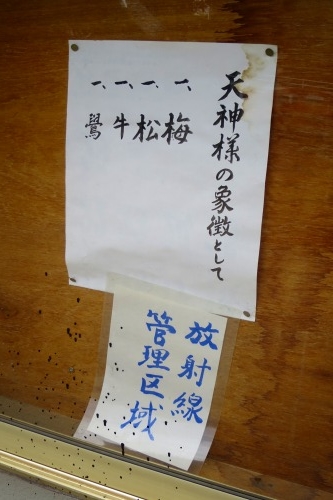 天神様の象徴として
一、梅
一、松
一、牛
一、鷽
放射線
管理区域